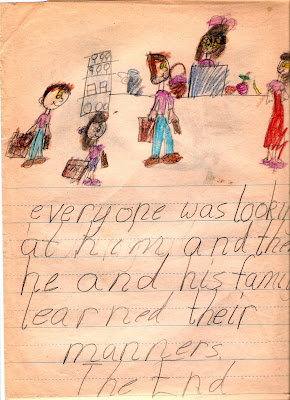 everyone was looking
at him and then
he and his family
learned their
manners.
The End